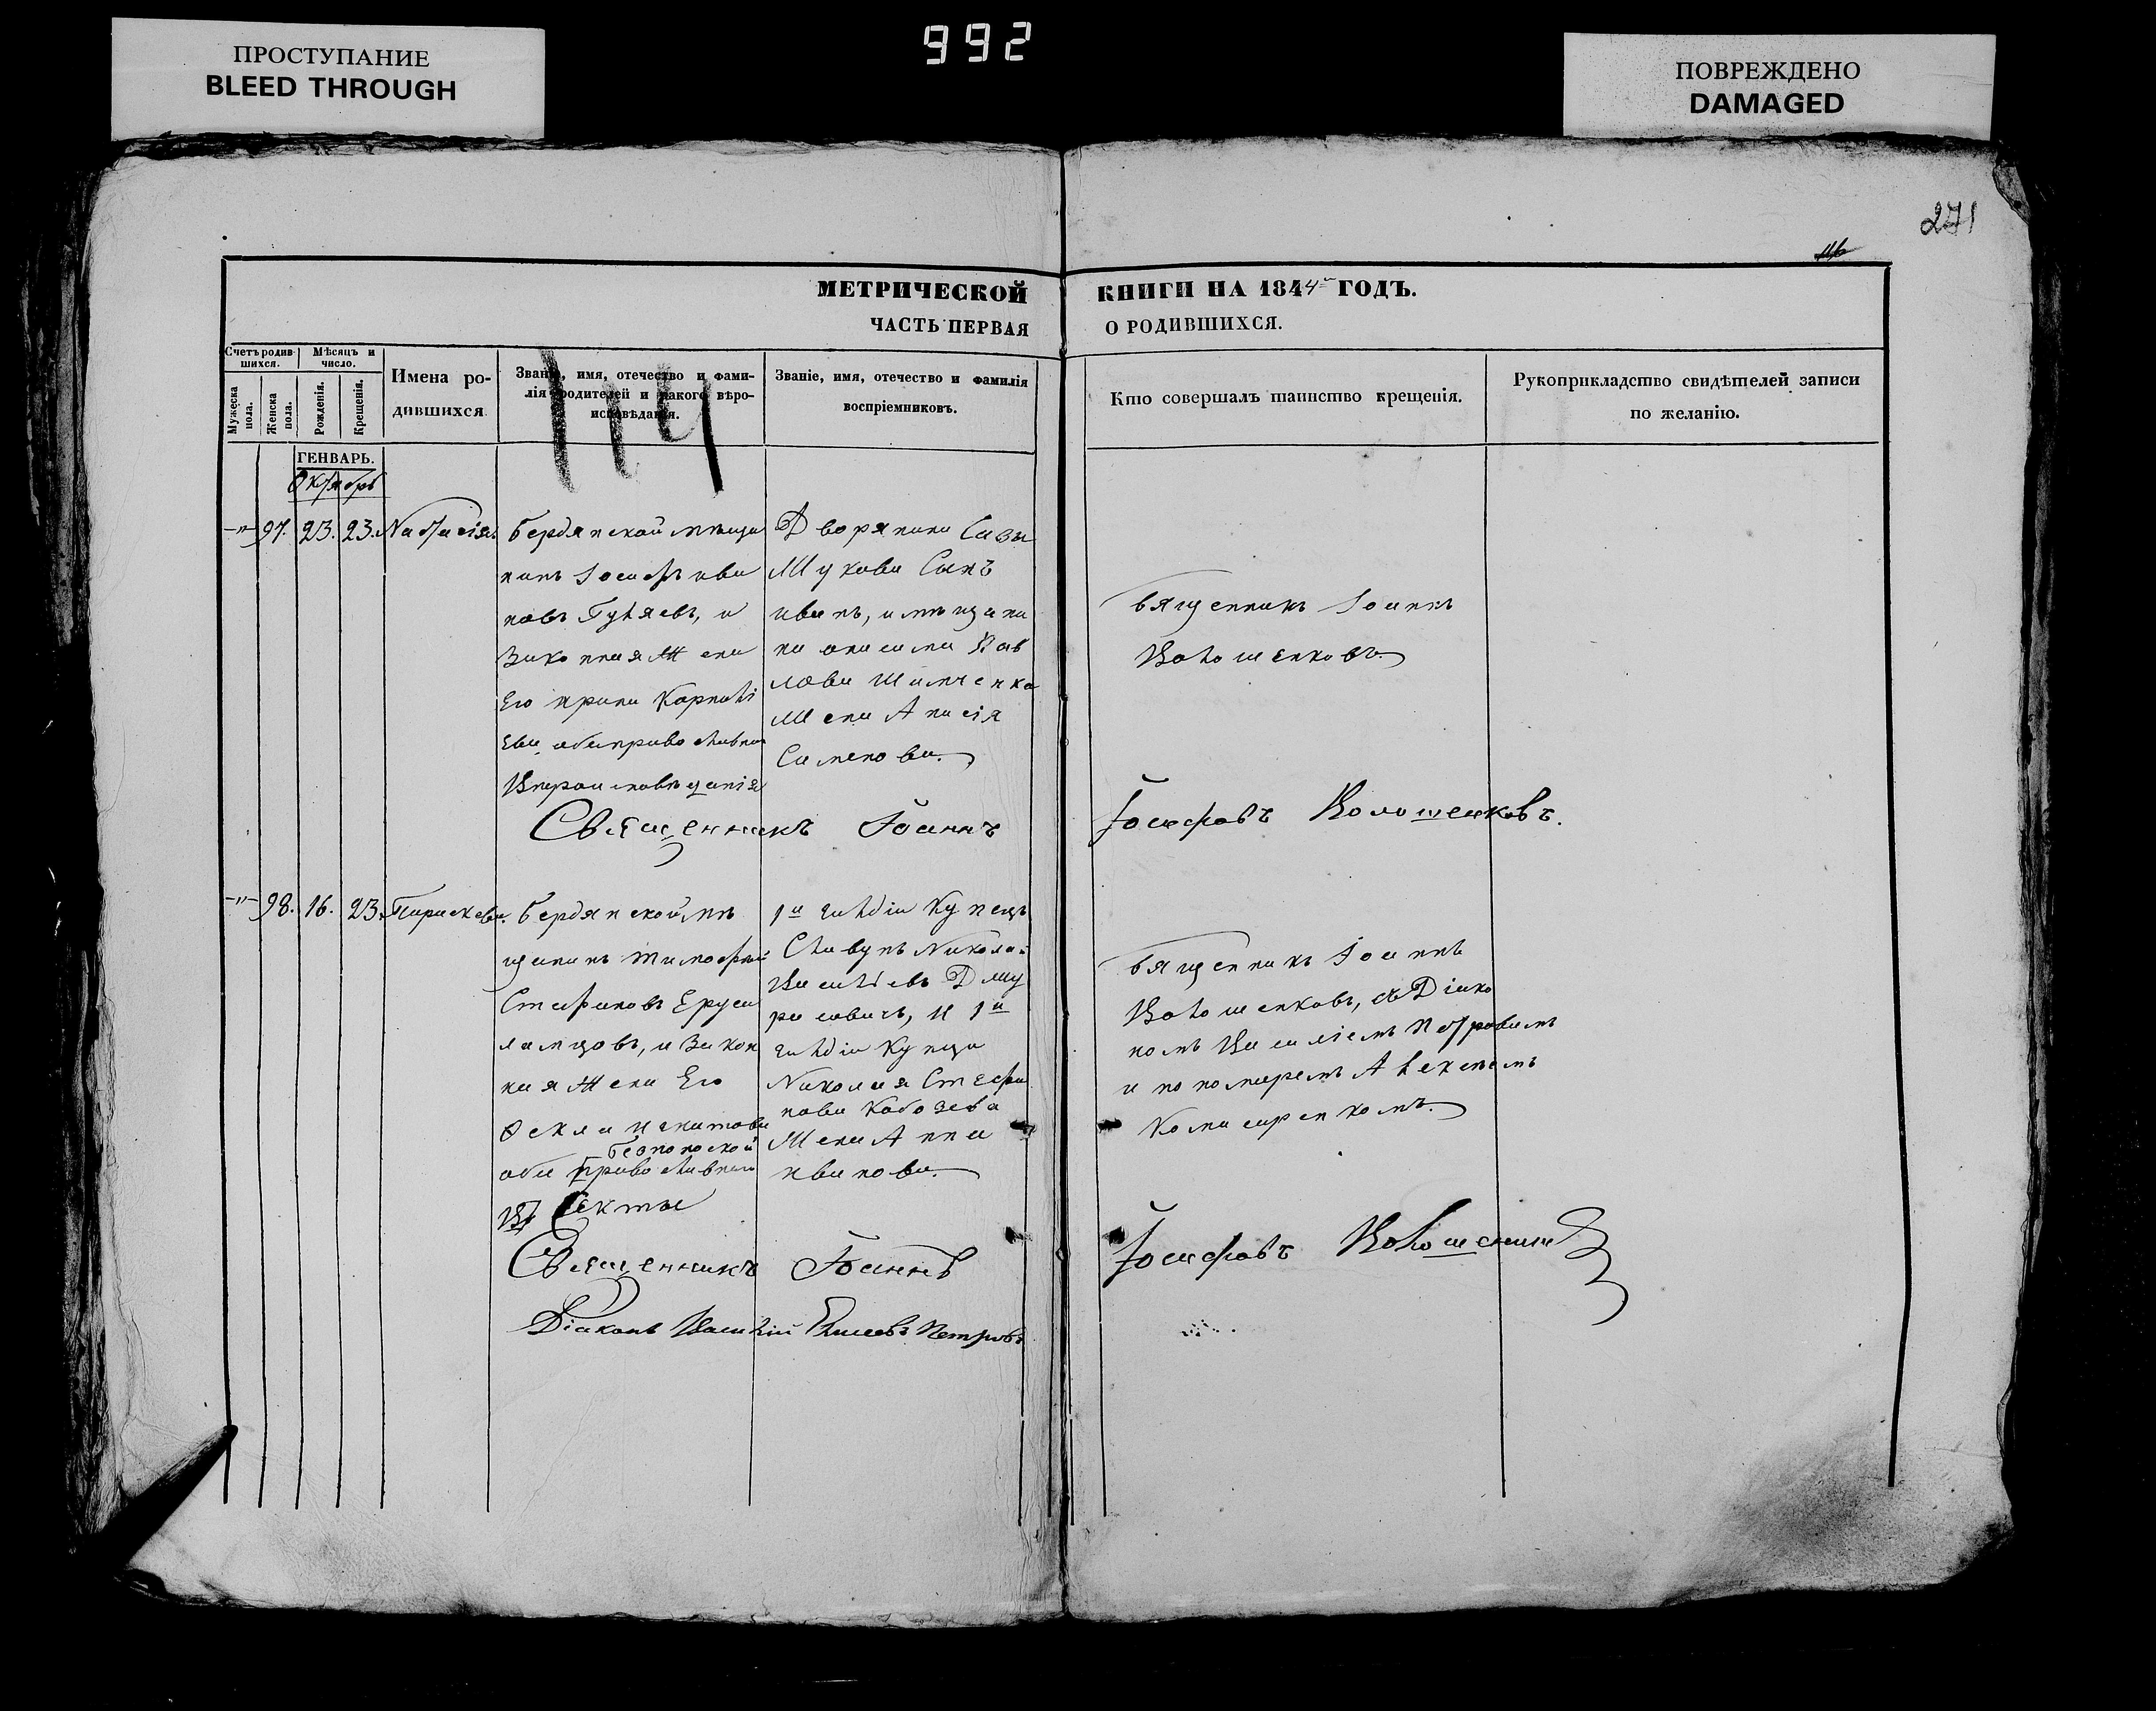 ПРОСТУПАНИЕ
BLEED THROUGH
992
ПОВРЕЖДЕНО
DAMAGED
271
МЕТРИЧЕСКОЙ КНИГИ НА 1844й ГОДЪ.
ЧАСТЬ ПЕРВАЯ О РОДИВШИХСЯ.
Счетъ родив-
шихся.
Мужеска пола.
Женска пола.
Мѣсяцъ и
число.
Рожденія.
Крещенія.
Имена ро-
дившихся
Званіе, имя, отечество и фами-
лія родителей и какого вѣро-
исповѣданія.
Званіе, имя, отечество и фамилія
воспріемниковъ.
Кто совершалъ таинство крещенія.
Рукоприкладство свидѣтелей записи
по желанію.
114
ГЕНВАРЬ.
Октябрь
-"- 97. 23. 23. Настасія
Бердянской мѣща
нинъ Іосифъ Ива
новъ Гуляевъ, и
Законная Жена
Его Ирина Корнилі
Ева, оба православна
Вѣроисповѣданія
Дворянина Савы
Жукова Сынъ
Иванъ, и мѣщани
на Онисима Пав
лова Шимченка
Жена Анисія
Семенова.
Священникъ Іоаннъ
Волошенковъ.
Священникъ Іоаннъ Іосифовъ Волошенковъ.
-"- 98. 16. 23. Параскева.
Бердянской мѣ
щанинъ Тимофей
Стефановъ Еруса
лимцовъ, и Закон
ная Жена Его
Фекла Никитова
Безпоповской
оба православнаго
Секты
1й гильдіи Купецъ
Славунъ Николай
Васильевъ
и 1й
гильдіи Купца
Николая Стефа
нова Кобозева
Жена Анна
Иванова.
Священникъ Іоаннъ
Волошенковъ, съ Діако
номъ Василіемъ Петровымъ
и пономаремъ Алексѣемъ
Комисаренкомъ.
Священникъ Іоаннъ Іосифовъ Волошенковъ
Діаконъ Василій Елисеевъ Петровъ